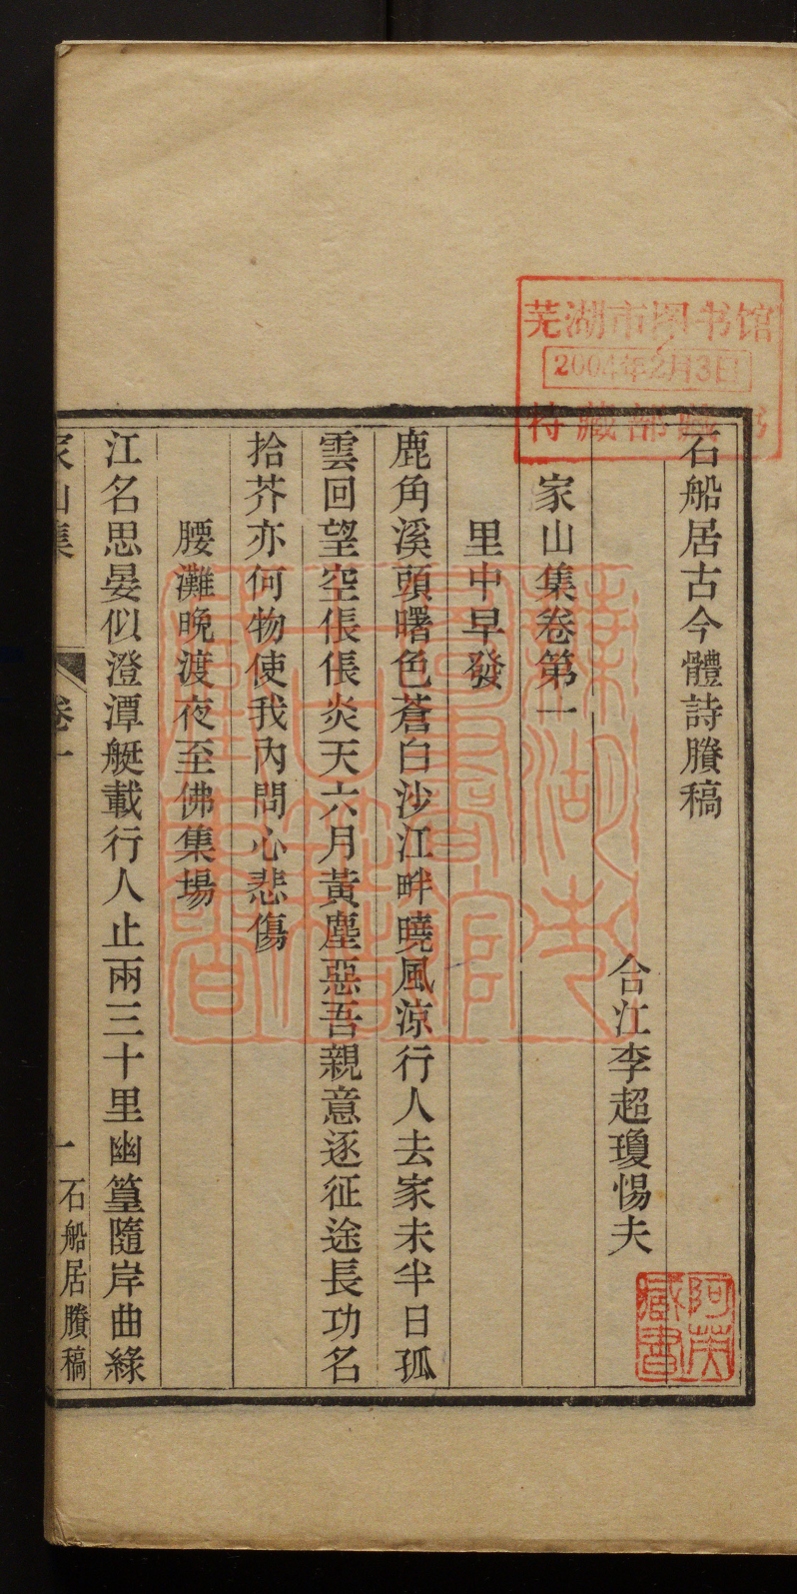 石船居古今體詩賸稿
合江李超瓊惕夫
家山集卷第一
里中早發
鹿角溪頭曙色蒼白沙江畔曉風涼行人去家未半日孤
雲回望空倀倀炎天六月黃塵惡吾親意逐征途長功名
拾芥亦何物使我內問心悲傷
腰灘晚渡夜至佛集場
江名思晏似澄潭艇載行人止兩三十里幽篁隨岸曲綠
家山集
卷一
一
石船居賸稿
芜湖市图书馆
2004年2月3日
特藏部藏书
蕪湖市圖書館古籍
藏書